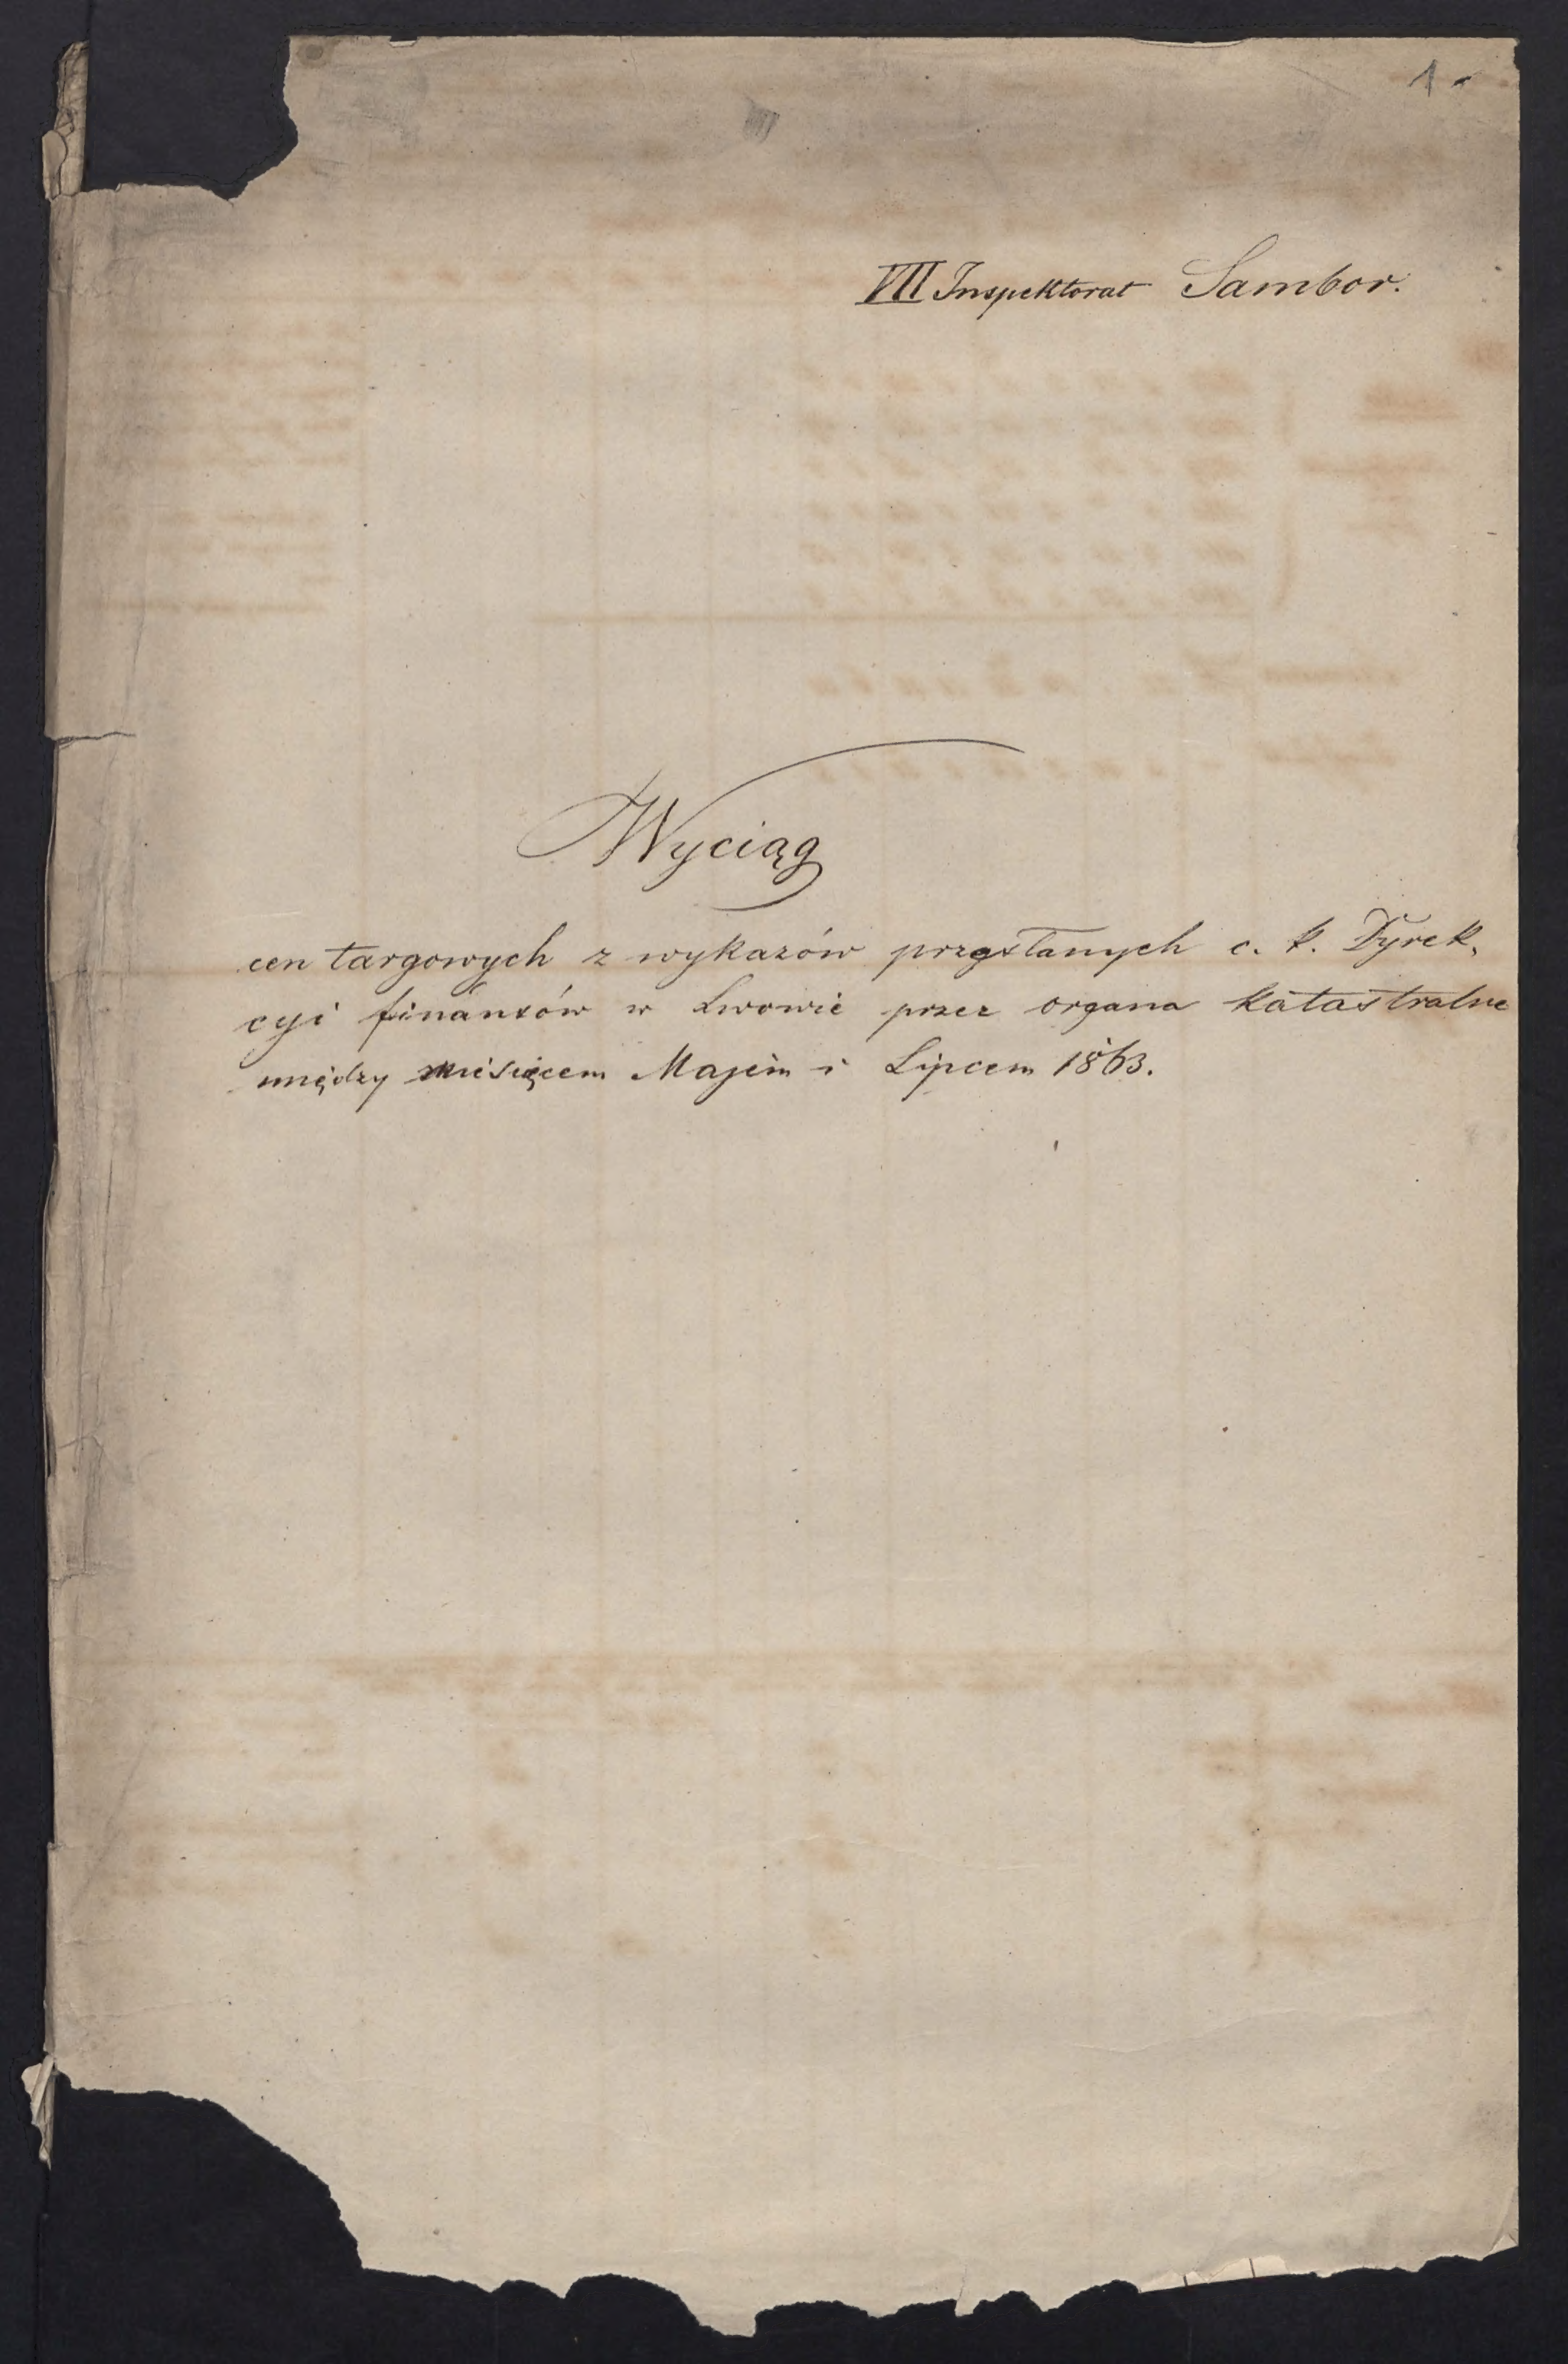 1.
VII Inspektorat Sambor.
Wyciąg
cen targowych z wykazów przysłanych c. k. Dyrek,
cyi finansów w Lwowie przez organa katastralne
między miesięcem Majem i Lipcem 1863.